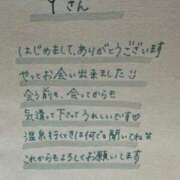 Yさん
はじめまして、ありがとうございます
やっとお会い出来ました
会う前も、会ってからも
気遣って下さってうれしいです♡
温泉行くときは何でも聞いてね☆
これからもよろしくお願いします